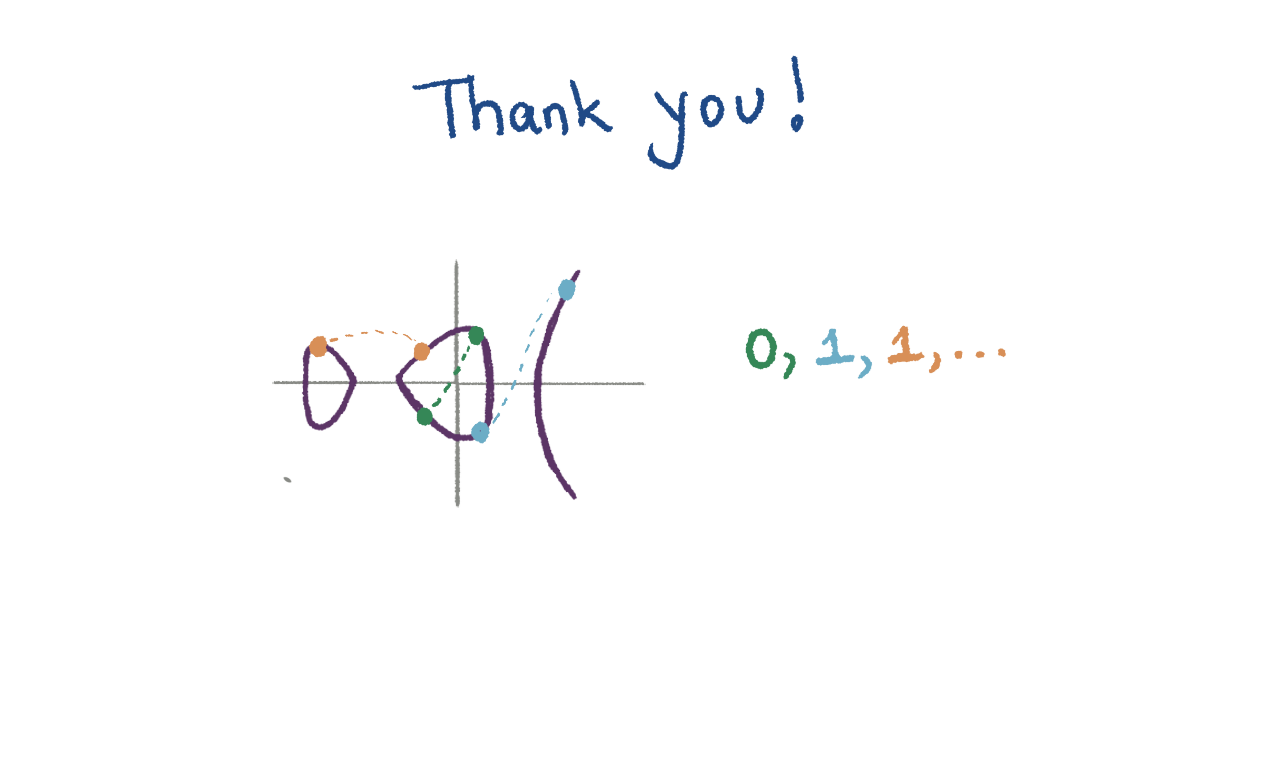 Thank you!
0, 1, 1, ...